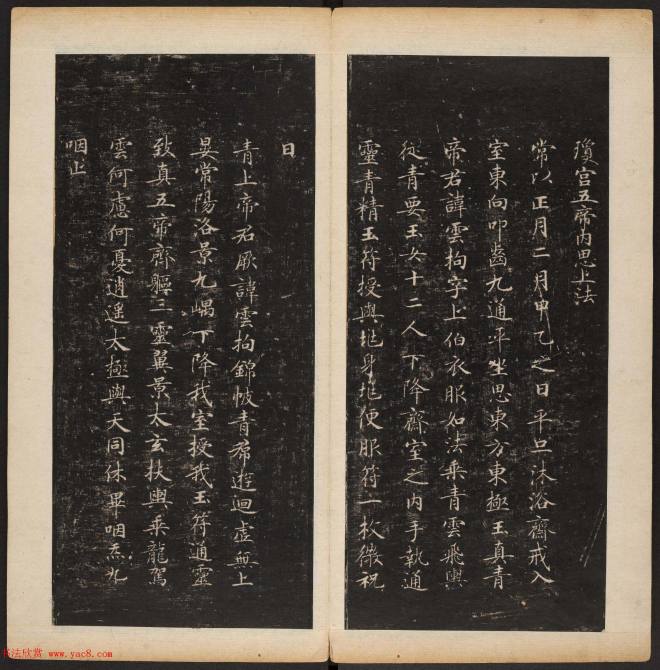 瓊宮五帝內思上法
常以正月二月甲乙之日平旦沐浴齋戒入
室東向叩齒九通平坐思東方東極玉真青
帝君諱雲拘字上伯衣服如法乘青雲飛輿
從青要玉女十二人下降齋室之內手執通
靈青精玉符授與地身地便服符一枚微祝
曰
青上帝君厥諱雲拘錦帔青帬遊迴虛無上
晏常陽洛景九嵎下降我室授我玉符通靈
致真五帝齊軀三靈翼景太玄扶輿乘龍駕
雲何慮何憂逍遙太極與天同休畢咽炁九
咽止
书法欣赏 www.yac8.com